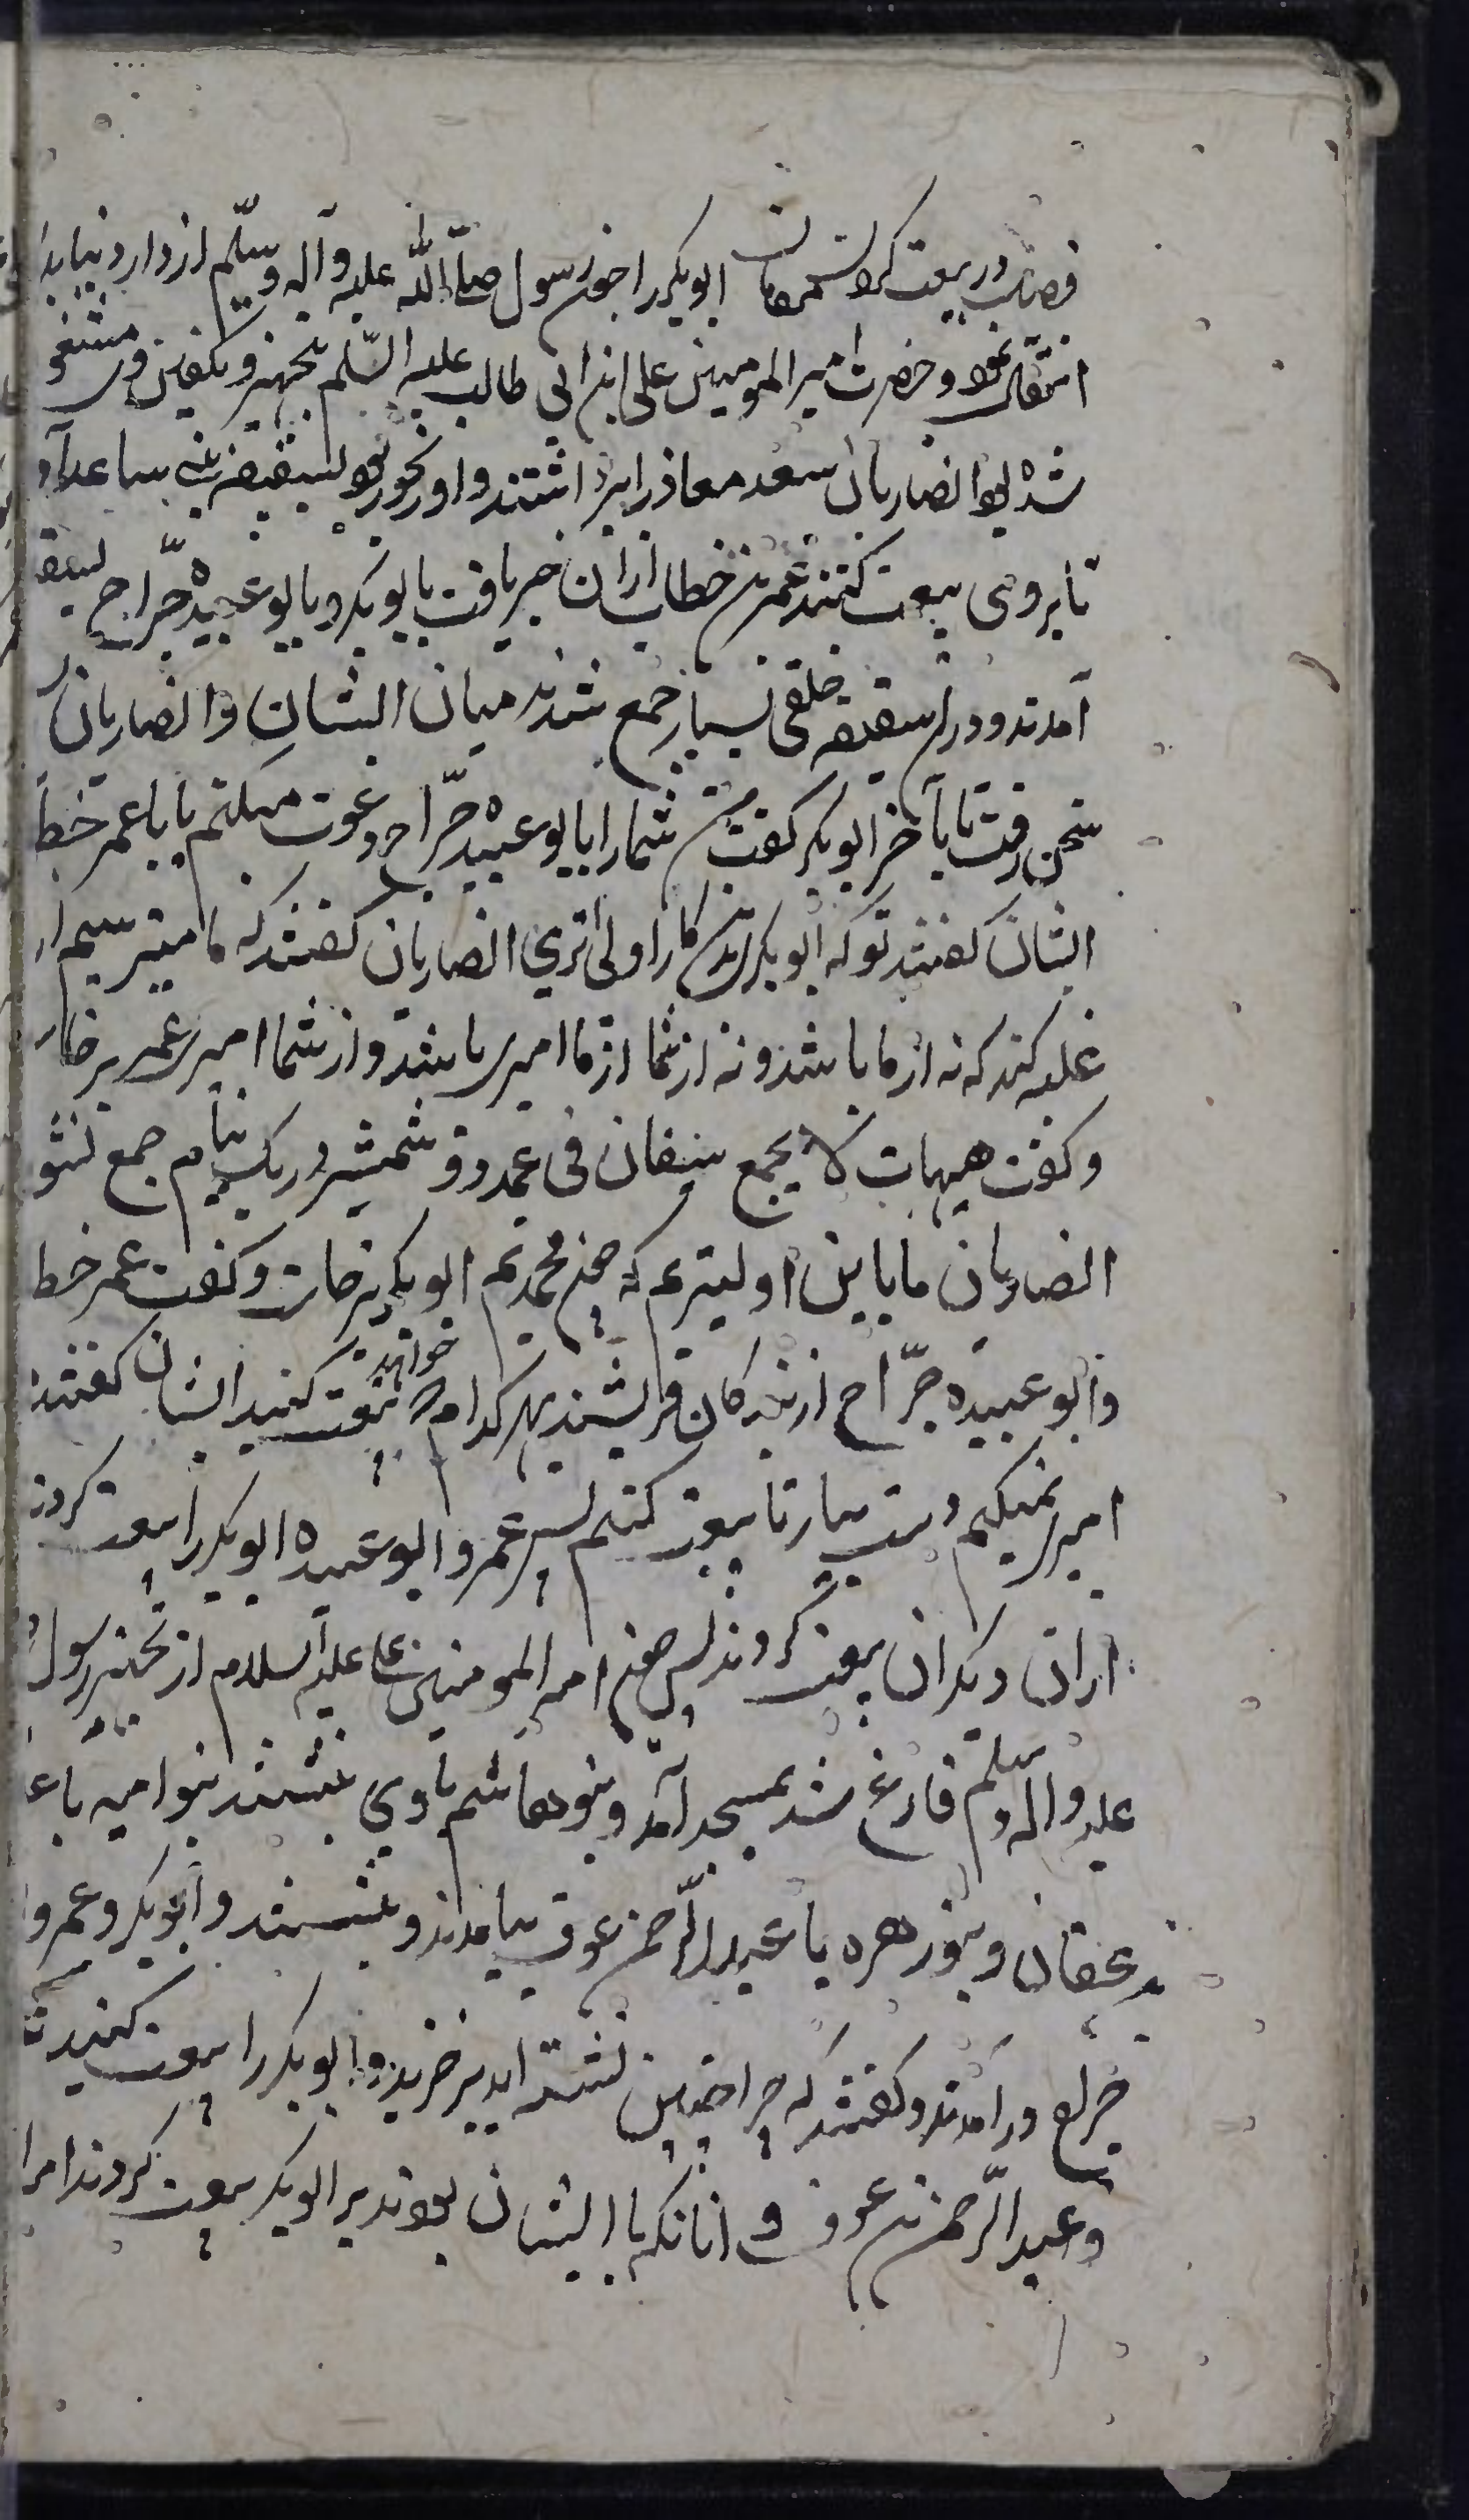 فصل در بیعت کردن ابوبکر را چون رسول صلّی اللّه علیه وآله وسلّم از دار دنیا
انتقال نمود و حضرت امیر المومنین علی ابن ابی طالب علیه السّلم بتجهیز و تکفین وی مشغو
شده بود انصاریان سعد معاذ را برداشتند و او رنجور بود بسقیفه بنی ساعده آو
تا بر وی بیعت کنند عمر بن خطاب ازان خبر یافت با ابوبکر و با ابو عبیده جرّاح بسقیفه
آمدند و دران سقیفه خلقی بسیار جمع شدند میان ایشان و انصاریان
سخن رفت تا بآخر ابوبکر گفت من شمارا با ابو عبیده جرّاح دعوت میکنم یا با عمر خطا
ایشان گفتند تو که ابوبکری بدین کار اولی تری انصاریان گفتند که ما میترسیم از
غلبه کند که نه از ما باشد و نه از شما از ما امیری باشد و از شما امیری عمر برخاست
و گفت هیهات لا یجمع سیفان فی غمد دو شمشیر در یک نیام جمع نشو
انصاریان ما باین اولیتریم که صحب محمدیم ابوبکر برخاست و گفت عمر خطا
و ابو عبیده جرّاح از بزرگان قریشند بهر کدام که خواهید بیعت کنید ایشان گفتند
امیری نمیکنیم دست بیار تا بیعت کنیم پس عمر و ابو عبیده ابوبکر را بیعت کردند
ازان دیگران بیعت کردند پس چون امیر المومنین علی علیه السلام از تجهیز رسول
علیه واله وسلّم فارغ شد بمسجد آمد و بنو هاشم با وی بنشستند بنو امیه با ع
بن عفان و بنو زهره با عبد الرّحمن عوف بیامدند و بنشستند و ابوبکر و عمر و ا
جراح در آمدند و گفتند که چرا چنین نشسته اید برخیزید و ابوبکر را بیعت کنید
و عبد الرّحمن بن عوف و انانکه با ایشان بودند بر ابوبکر بیعت کردند امرا